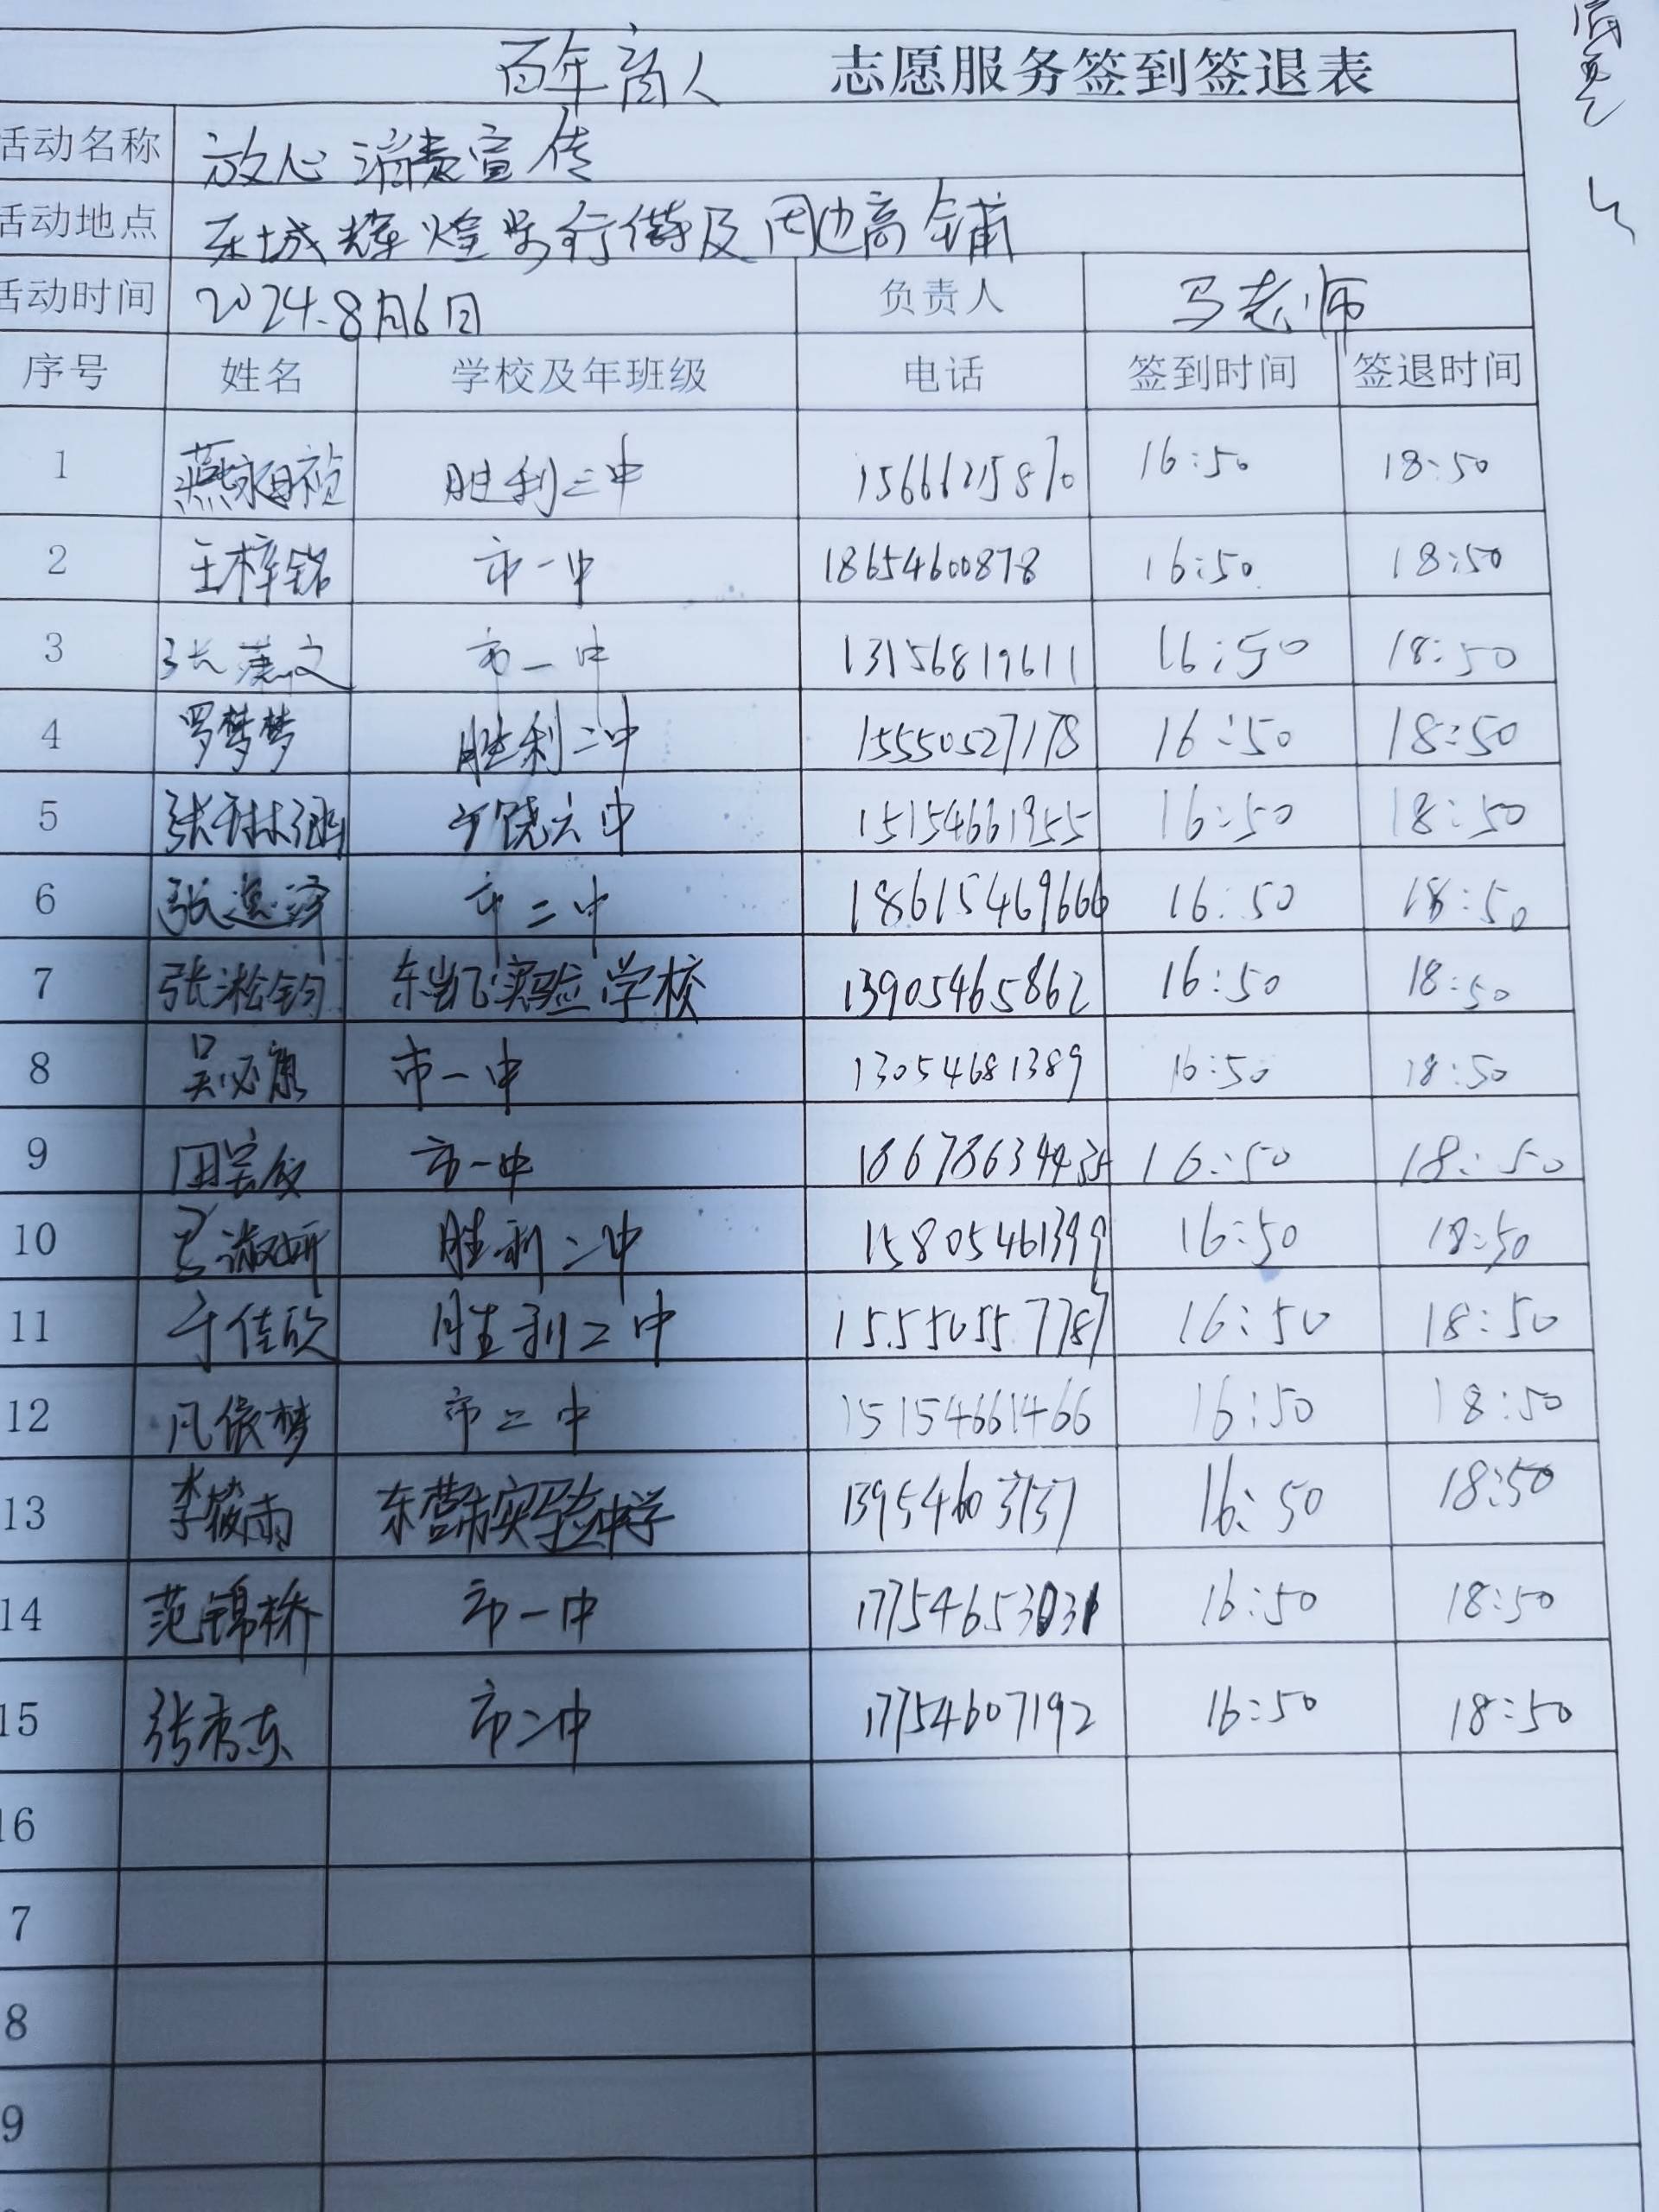 百年商人 志愿服务签到签退表
活动名称 放心消费宣传
活动地点 东城辉煌步行街及周边商铺
活动时间 2024.8月6日 负责人 马老师
序号 姓名 学校及年班级 电话 签到时间 签退时间
1 燕翊祯 胜利二中 16:50 18:50
2 王梓铭 市一中 18654600878 16:50 18:50
3 市一中 13156819611 16:50 18:50
4 罗梦梦 胜利二中 15550527178 16:50 18:50
5 张琳涵 广饶六中 15154661955 16:50 18:50
6 张逸泽 市二中 18615469666 16:50 18:50
7 张淞钧 东凯实验学校 13905465862 16:50 18:50
8 吴必康 市一中 13054681389 16:50 18:50
9 市一中 16:50 18:50
10 马淑妍 胜利二中 15805461399 16:50 18:50
11 于佳欣 胜利二中 155550557787 16:50 18:50
12 凡依梦 市二中 15154661466 16:50 18:50
13 李筱雨 东营市实验中学 13954603737 16:50 18:50
14 范锦桥 市一中 17754653031 16:50 18:50
15 市二中 17754607192 16:50 18:50
16
7
8
9